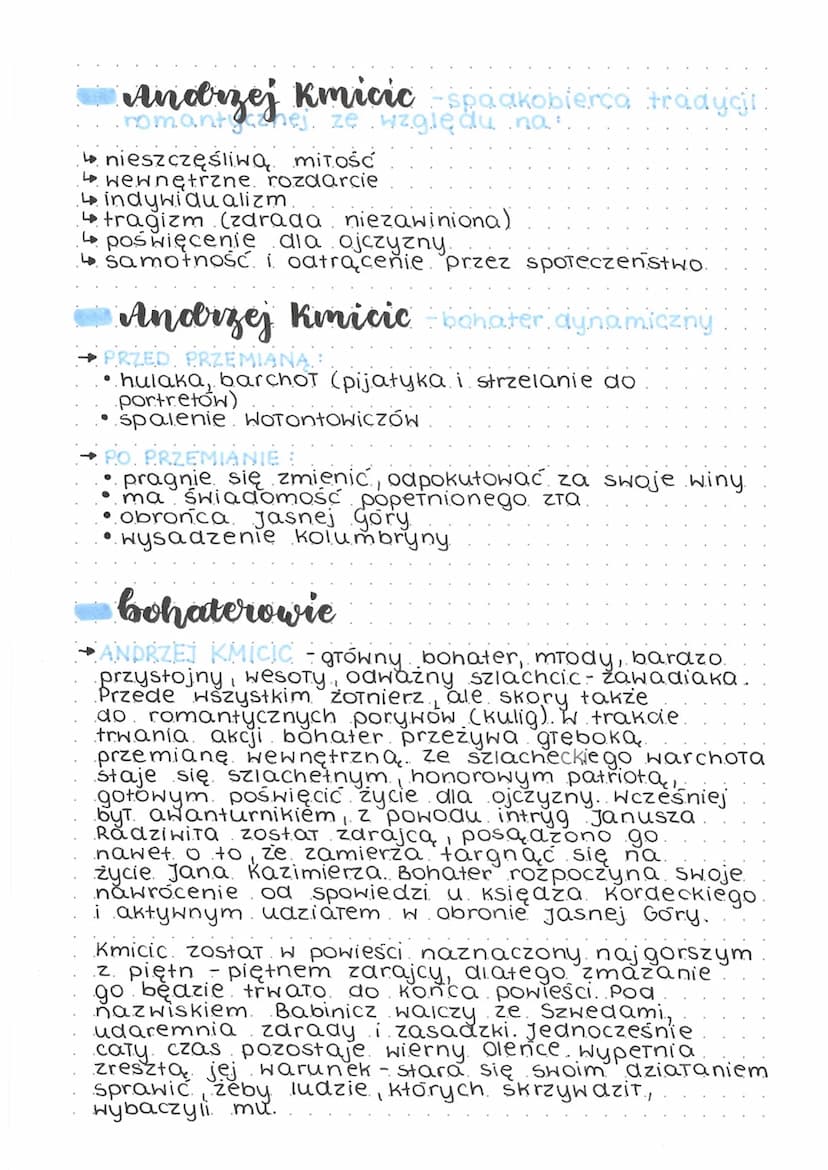 Andrzej Kmicic - spadkobierca tradycji
romantycznej ze względu na:
↳ nieszczęśliwą miłość
↳ wewnętrzne rozdarcie
↳ indywidualizm
↳ tragizm (zdrada niezawiniona)
↳ poświęcenie dla ojczyzny
↳ samotność i odtrącenie przez społeczeństwo
Andrzej Kmicic - bohater dynamiczny
→ PRZED PRZEMIANĄ:
• hulaka, barchoł (pijatyka i strzelanie do
portretów)
• spalenie Wołontowiczów
→ PO PRZEMIANIE:
• pragnie się zmienić, odpokutować za swoje winy
• ma świadomość popełnionego zła
• obrońca Jasnej Góry
• wysadzenie kolumbryny
bohaterowie
→ ANDRZEJ KMICIC - główny bohater, młody, bardzo
przystojny, wesoły, odważny szlachcic - zawadiaka.
Przede wszystkim żołnierz, ale skory także
do romantycznych porywów (kulig). W trakcie
trwania akcji bohater przeżywa głęboką
przemianę wewnętrzną. Ze szlacheckiego warchoła
staje się szlachetnym, honorowym patriotą,
gotowym poświęcić życie dla ojczyzny. Wcześniej
był awanturnikiem, z powodu intryg Janusza
Radziwiła został zdrajcą, posądzono go
nawet o to, że zamierza targnąć się na
życie Jana Kazimierza. Bohater rozpoczyna swoje
nawrócenie od spowiedzi u księdza Kordeckiego
i aktywnym udziałem w obronie Jasnej Góry.
Kmicic został w powieści naznaczony najgorszym
z piętn - piętnem zdrajcy, dlatego zmazanie
go będzie trwało do końca powieści. Pod
nazwiskiem Babinicz walczy ze Szwedami,
udaremnia zdrady i zasadzki. Jednocześnie
cały czas pozostaje wierny Oleńce. Wypełnia
zresztą jej warunek - stara się swoim działaniem
sprawić, żeby ludzie, których skrzywdził,
wybaczyli mu.